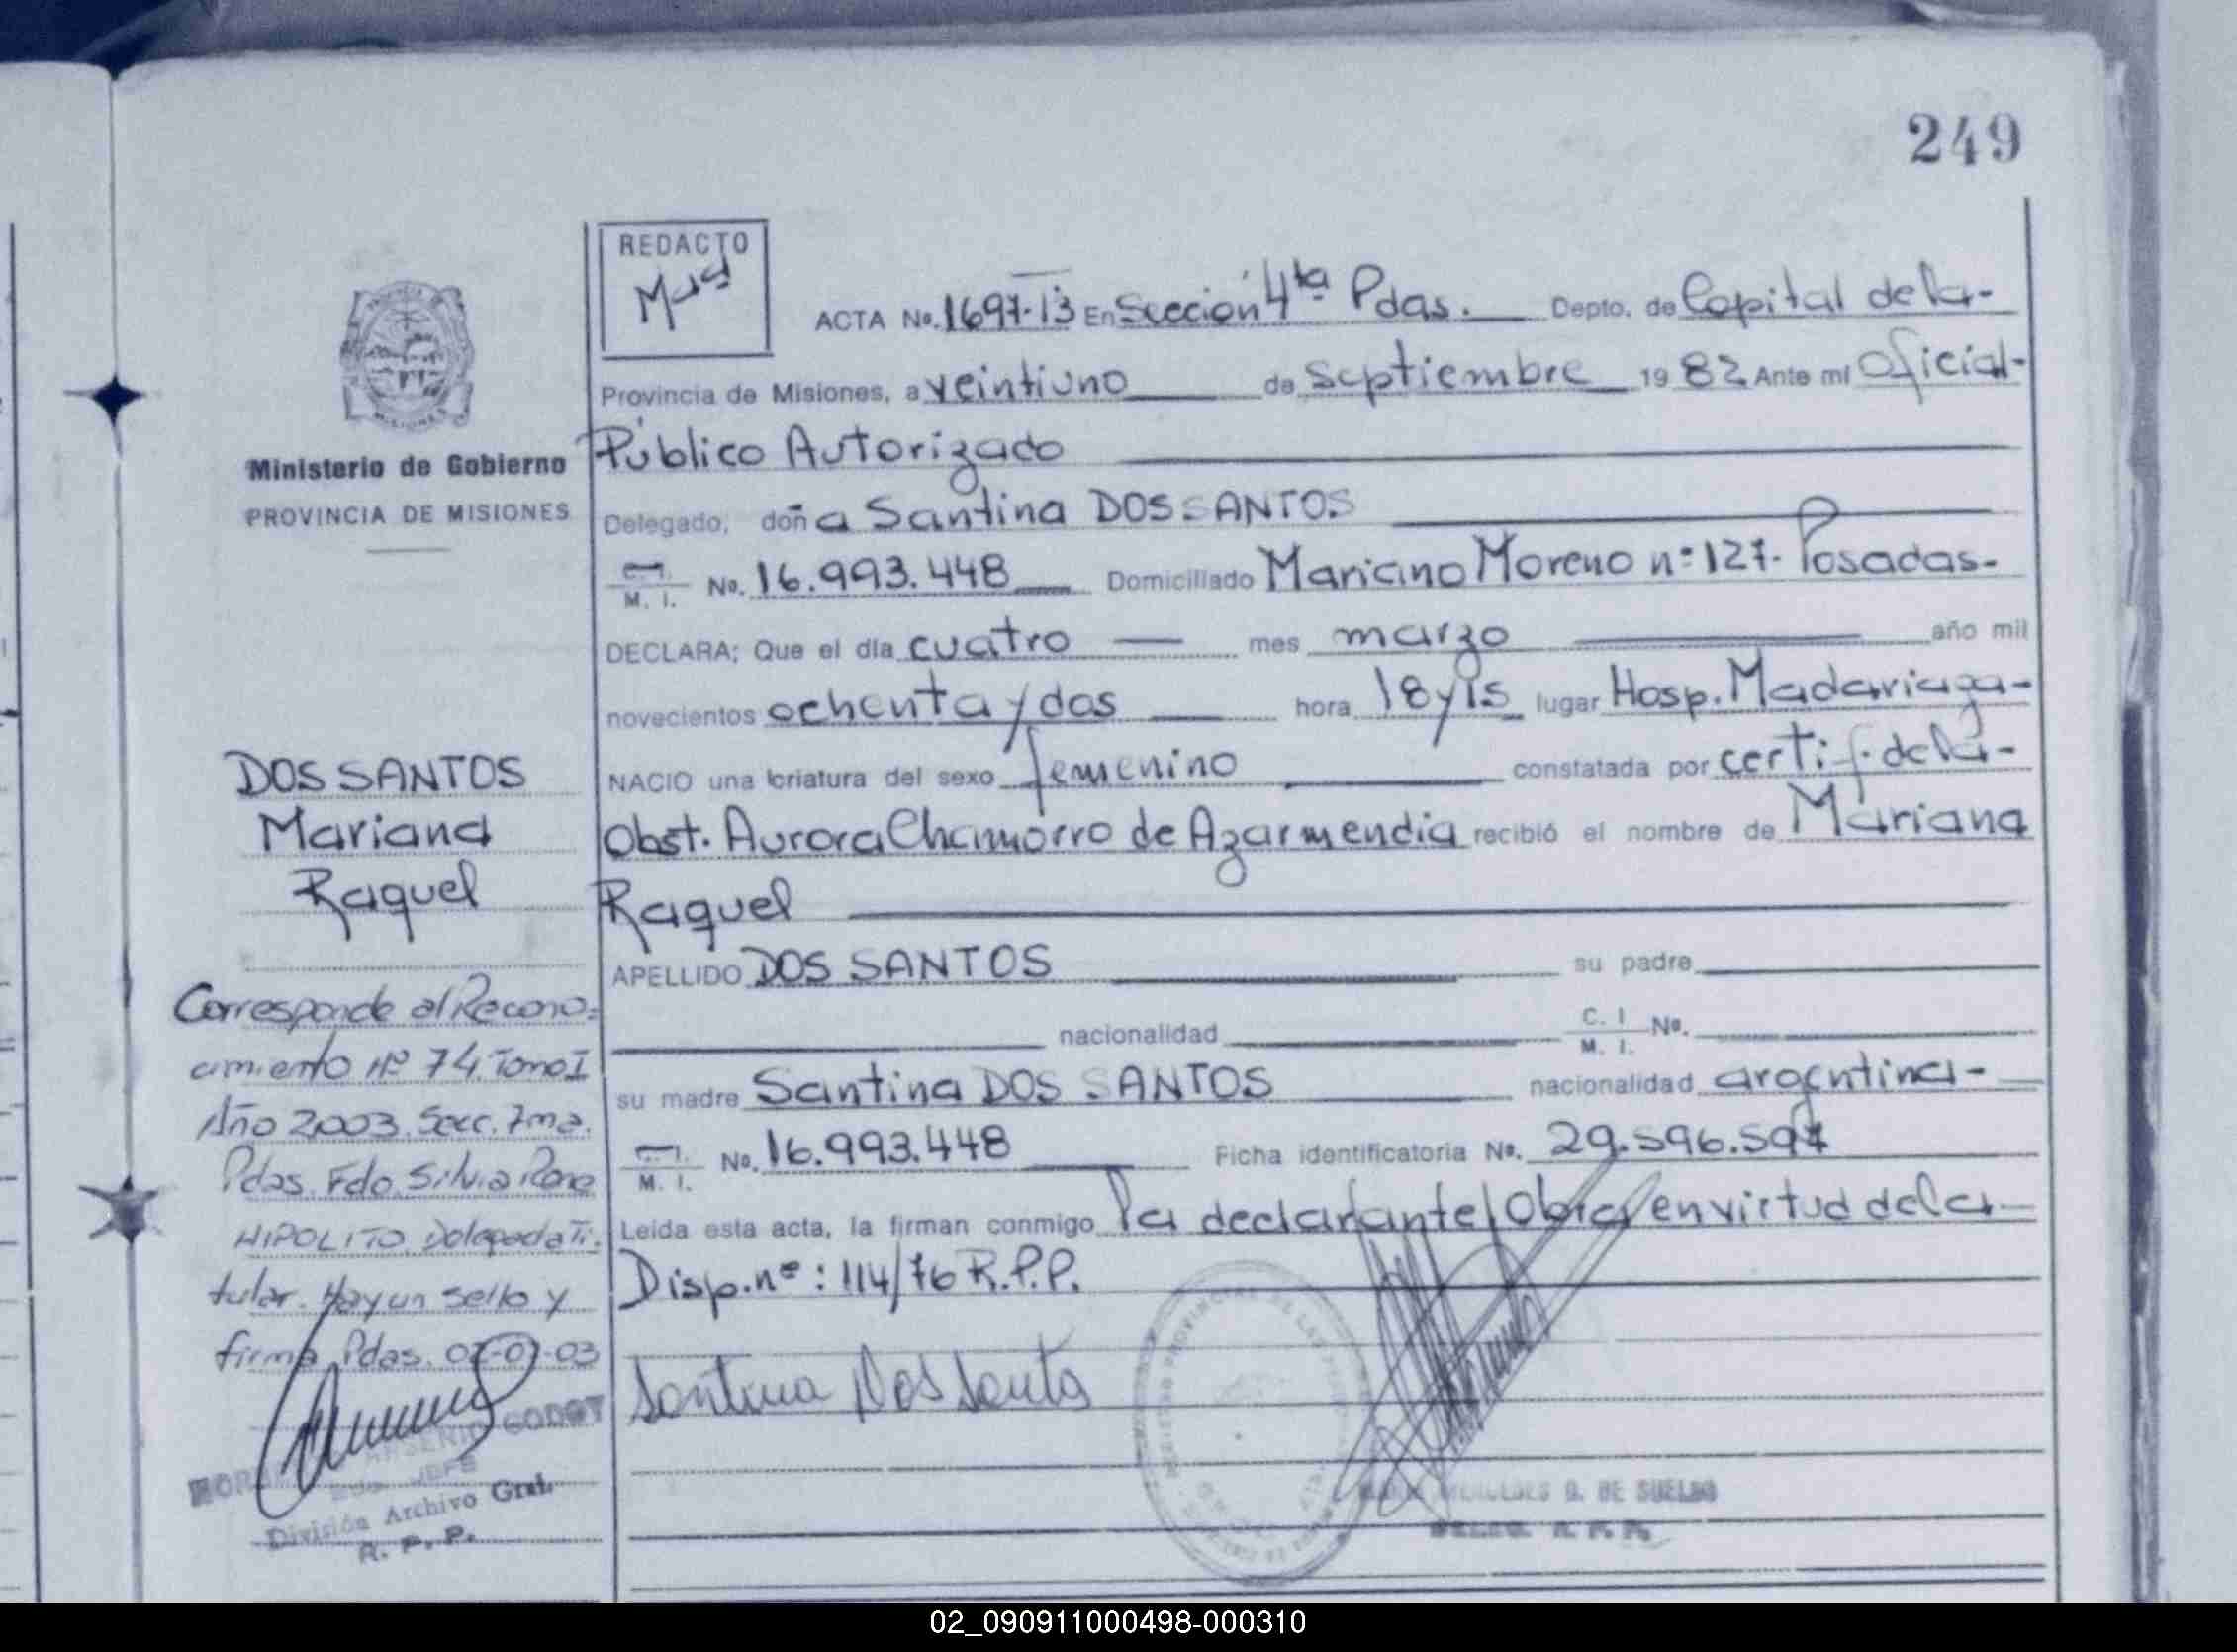 249
REDACTO
ACTA No. 1697-13 En Sección 4ta Pdas. Depto. de Capital de la-
Provincia de Misiones, a veintiuno de septiembre 19 82 Ante mí Oficial-
Público Autorizado
Delegado, doña Santina DOS SANTOS
M. I. No. 16.993.448 Domiciliado Mariano Moreno nº 127- Posadas-
DECLARA; Que el día cuatro mes marzo año mil
novecientos ochenta y dos hora 18 y 15 lugar Hosp. Madariaga-
NACIO una criatura del sexo femenino constatada por certif. de la-
Obst. Aurora Chamorro de Azarmendia recibió el nombre de Mariana
Raquel
APELLIDO DOS SANTOS su padre
nacionalidad C. I. M. I. No.
su madre Santina DOS SANTOS nacionalidad argentina-
M. I. No. 16.993.448 Ficha identificatoria No. 29.596.597
Leída esta acta, la firman conmigo la declarante/ Obra/ en virtud de la-
Disp. nº: 114/76 R.P.P.
Santina Dos Santos
DE SUELDO
MISIONES
Ministerio de Gobierno
PROVINCIA DE MISIONES
DOS SANTOS
Mariana
Raquel
Corresponde al Recono=
cimiento Nº 74. Tomo I
Año 2003. Secc. 7ma.
Pdas. Fdo. Silvia
HIPOLITO Delegada Ti.
tular. Hay un sello y
firma Pdas. 03
GODOY
División Archivo Gral.
R. P. P.
02_090911000498-000310